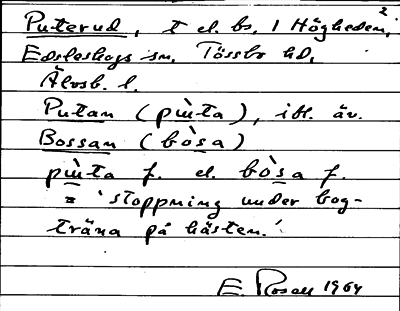 Puterud, t el. bs. / Högheden²,
Edsleskogs sn. Tössbo hd,
Älvsb. l.
Putan (pùta), ibl. äv.
Bossan (bòsa)
pùta f. el. bòsa f.
= 'stoppning under bog-
träna på hästen.'
E. Rosell 1964